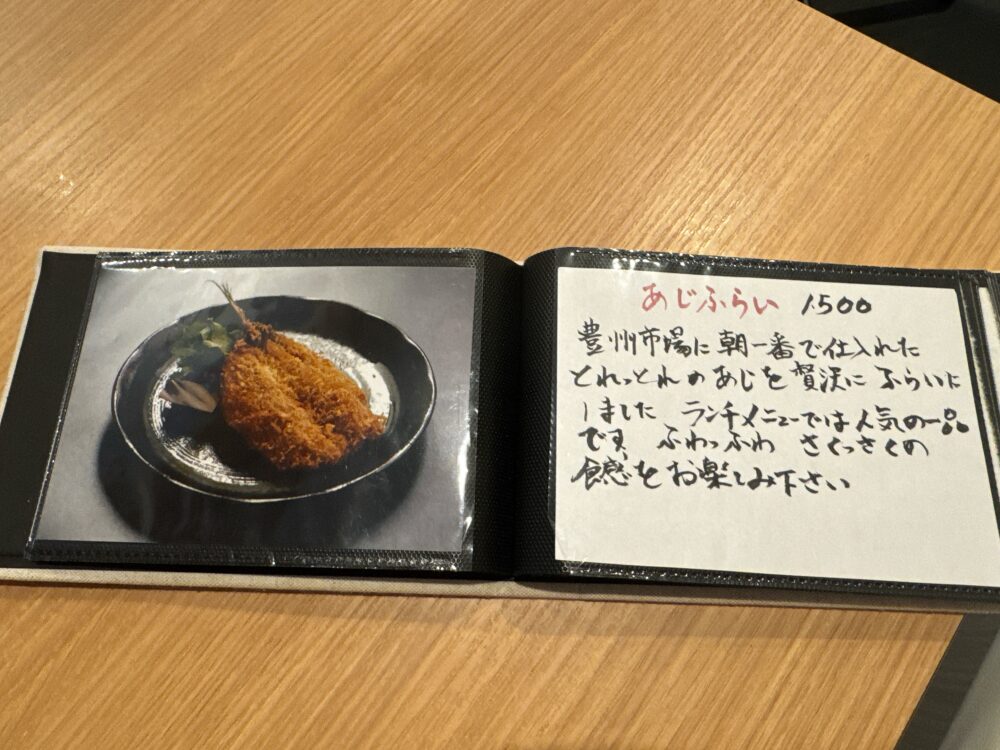 あじふらい 1500
豊州市場に朝一番で仕入れた
とれっとれのあじを贅沢にふらいに
しました ランチメニューでは人気の一品
です ふわっふわ さくっさくの
食感をお楽しみ下さい